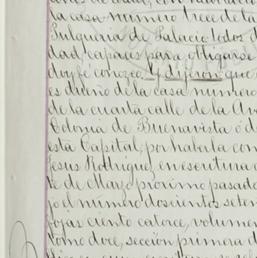 la casa número trece de la
Pulquria de Palacio todos d
dad, capaces para obligarse
doy fé conozco. Y dijeron que
es dueño de la casa número
de la cuarta calle de la
Colonia de Buenavista ó d
esta Capital, por haberla com
Jesus Rodriguez, en escritura
te de Mayo próximo pasado
jo el número doscientos seten
fojas ciento catorce, volumen
tomo doce, sección primera d